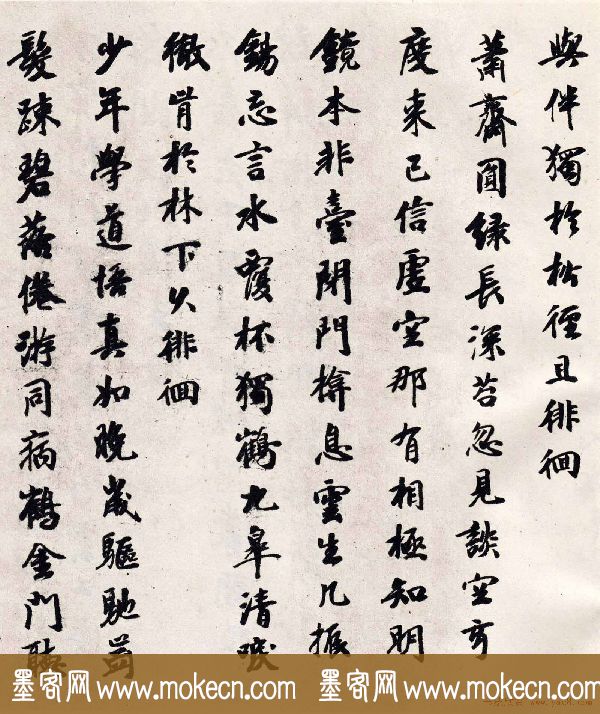 與伴獨於松徑且徘徊
蕭齋圓緑長深苔忽見談空
度来已信虚空那有相極知明
鏡本非臺閉門揜息雲生几振
錫忘言水覆杯獨鶴九皋清唳
徹肯於林下久徘徊
少年學道悟真如晚歲驅馳
髮疎碧落倦游同病鶴金門
墨客网 www.mokecn.com 墨客网 www.mokecn.com